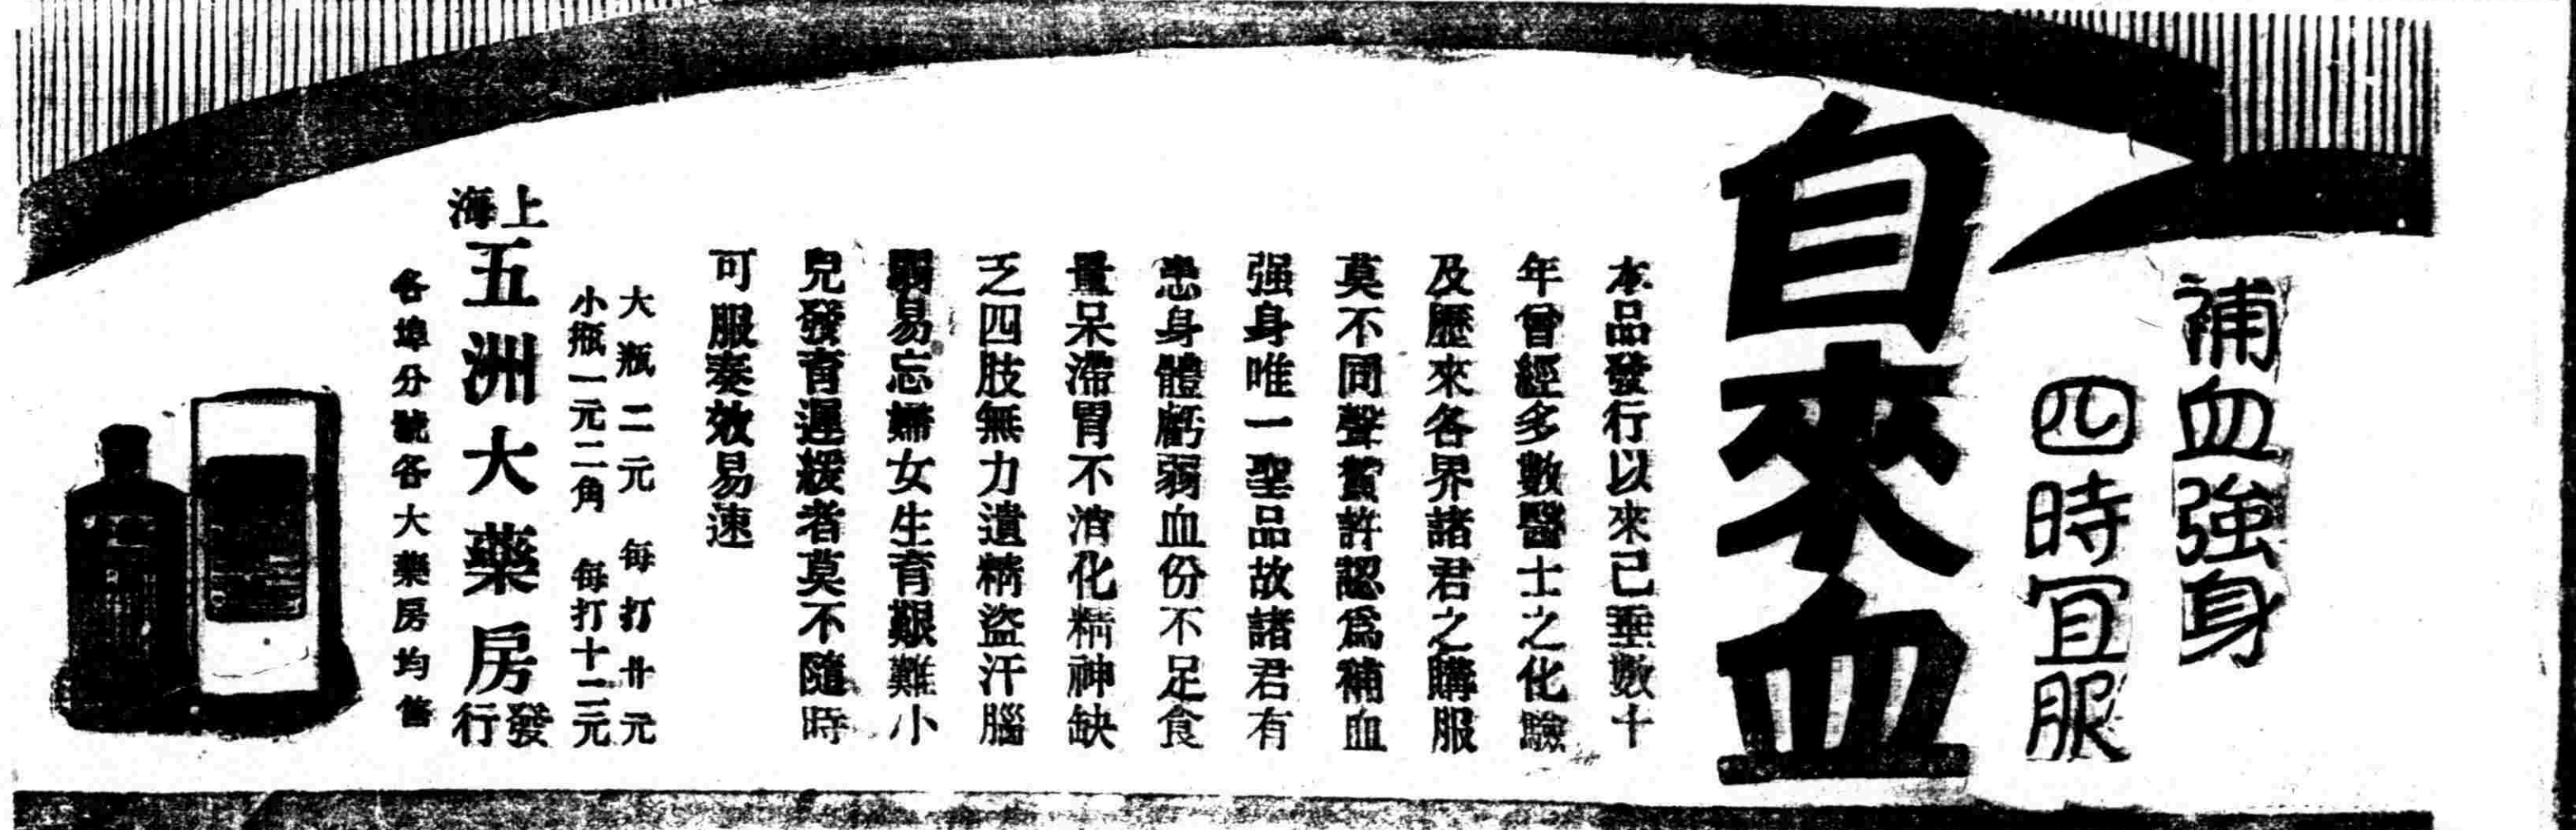 補血強身
四時宜服
自來血
本品發行以來已垂數十
年曾經多數醫士之化驗
及歷來各界諸君之購服
莫不同聲賞許認爲補血
强身唯一聖品故諸君有
患身體虧弱血份不足食
量呆滯胃不消化精神缺
乏四肢無力遺精盜汗腦
弱易忘婦女生育艱難小
兒發育遲緩者莫不隨時
可服奏效易速
大瓶二元 每打廿元
小瓶一元二角 每打十二元
上海五洲大藥房發行
各埠分號各大藥房均售